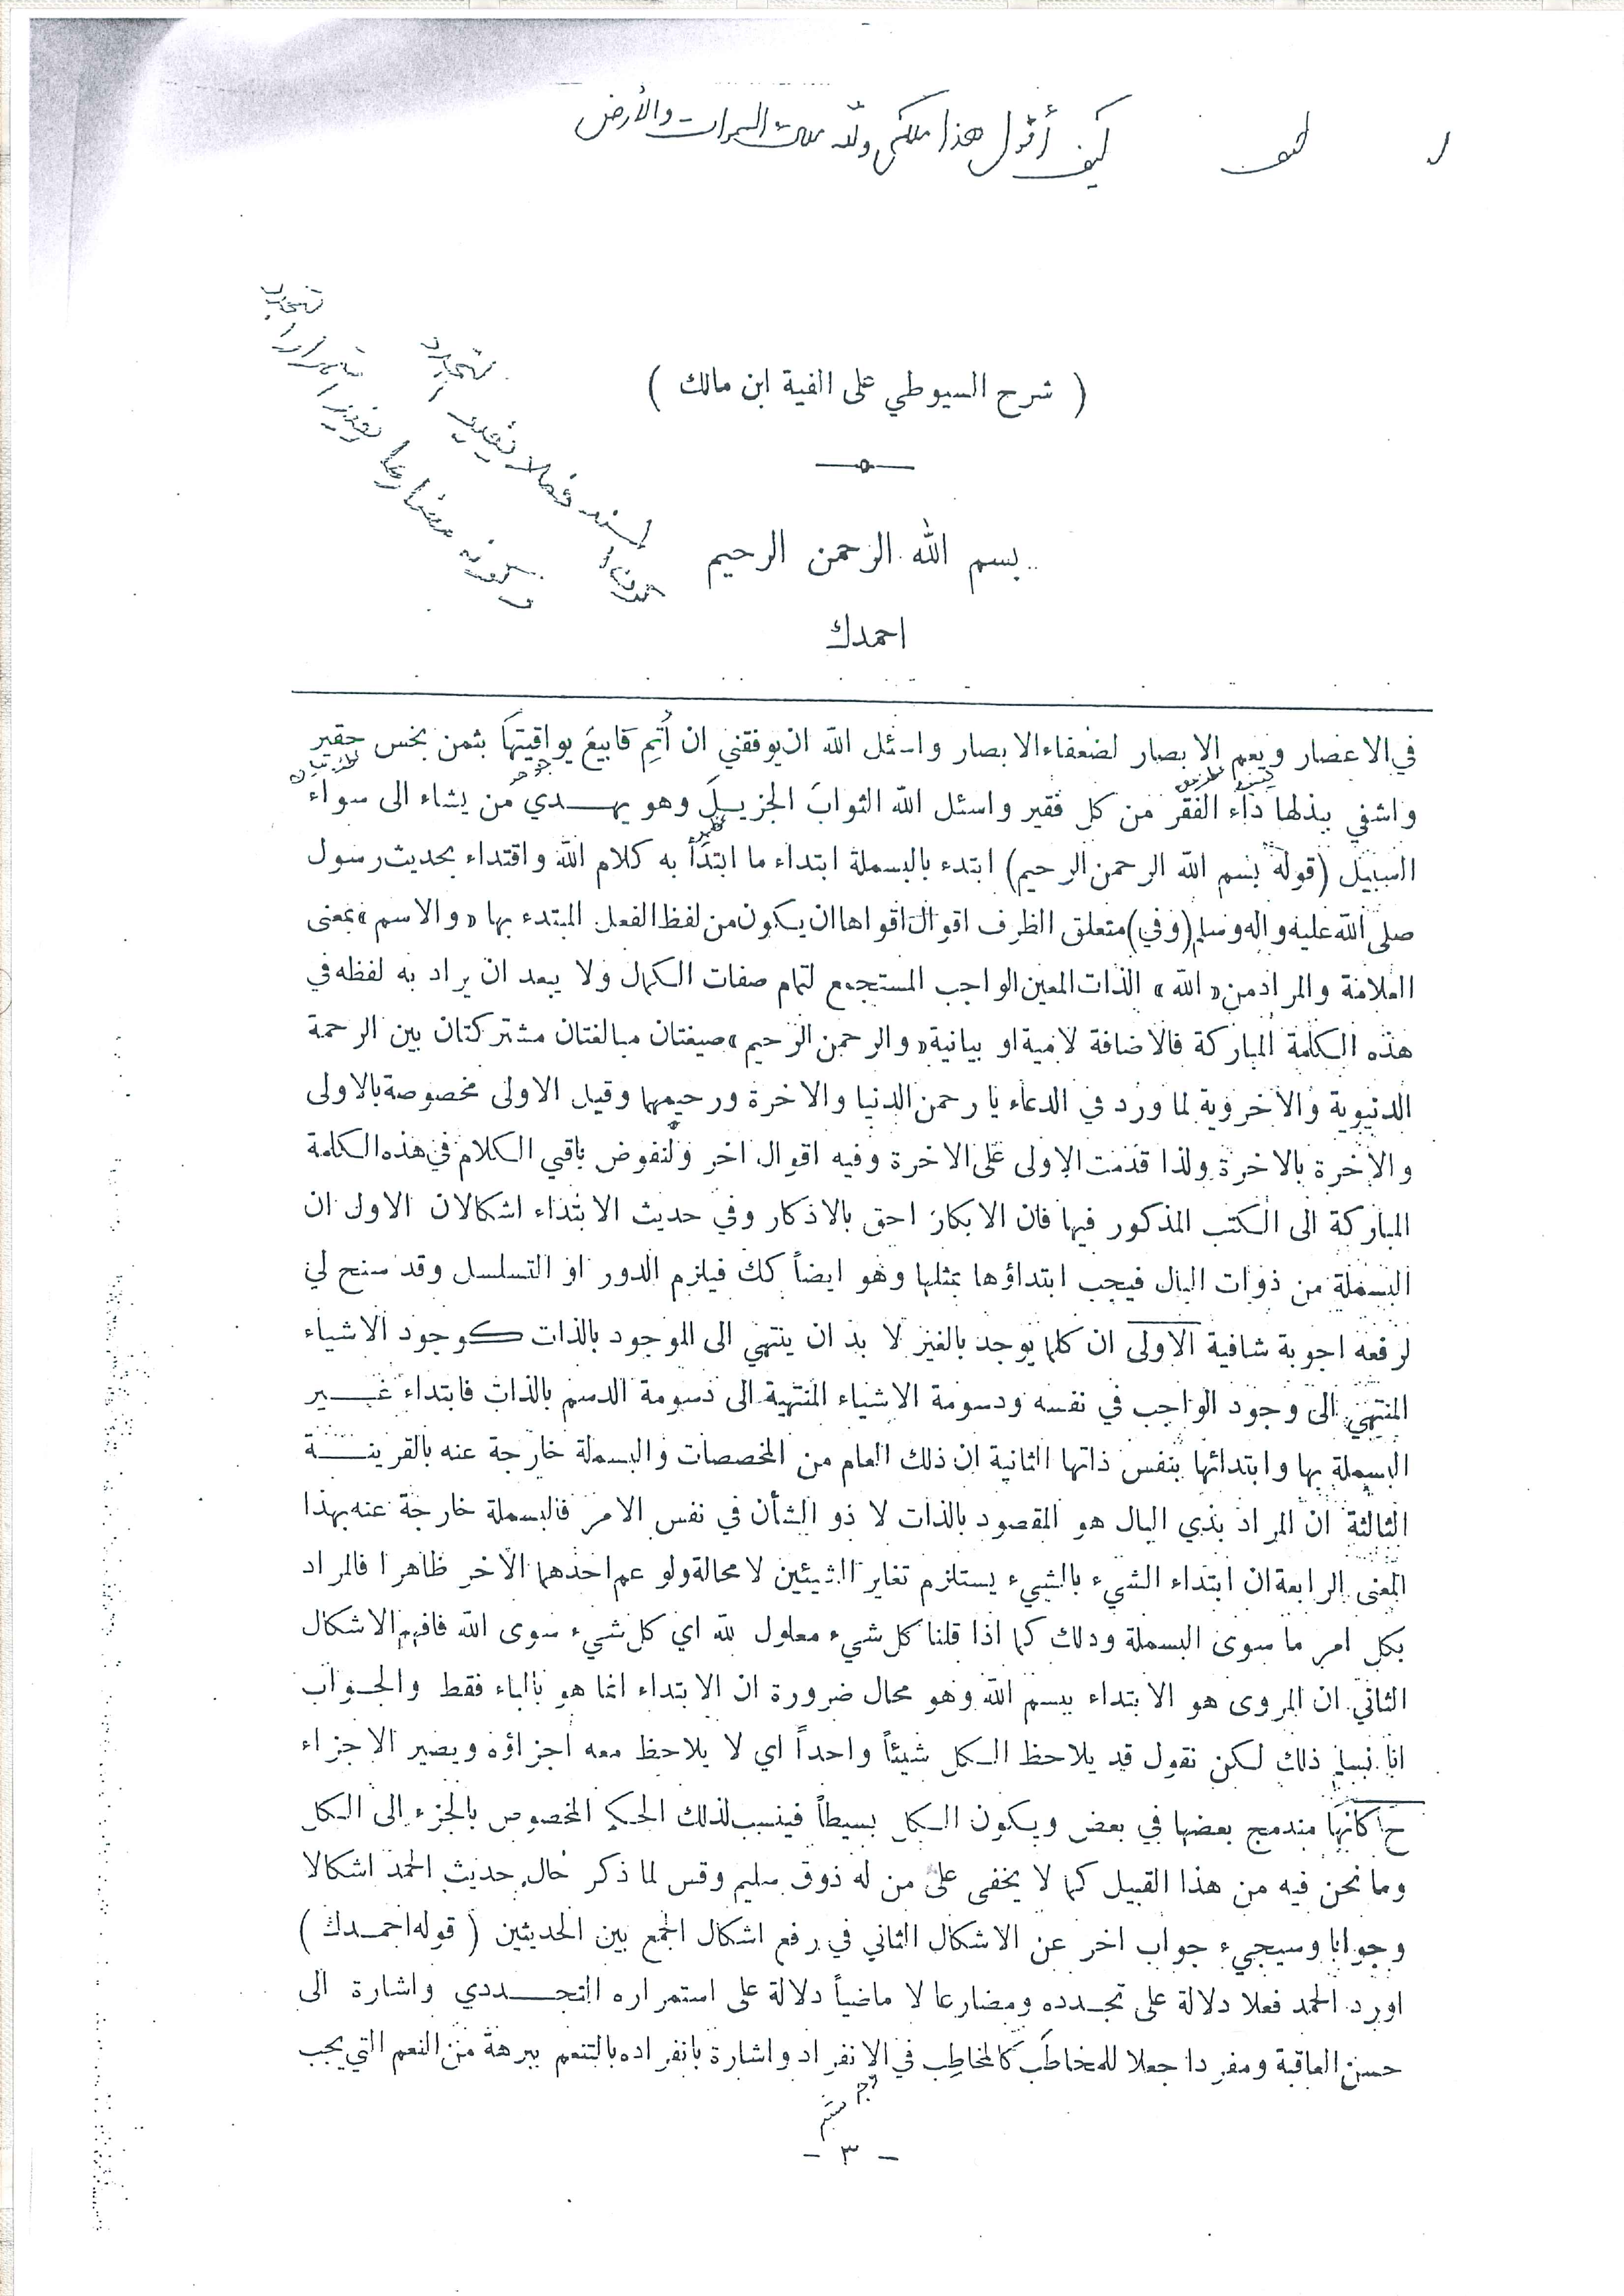 كيف أقول هذا ملكي ولله ملك السموات والأرض
( شرح السيوطي على الفية ابن مالك )
بسم الله الرحمن الرحيم
احمدك
في الاعصار ويعم الابصار لضعفاء الابصار واسئل الله ان يوفقني ان أتم فابيع يواقيتها بثمن بخس حقير
واشفي ببذلها داء الفقر من كل فقير واسئل الله الثواب الجزيل وهو يهدي من يشاء الى سواء
السبيل (قوله بسم الله الرحمن الرحيم) ابتدء بالبسملة ابتداء ما ابتدأ به كلام الله واقتداء بحديث رسول
صلى الله عليه واله وسلم (وفي) متعلق الظرف اقوال اقواها ان يكون من لفظ الفعل المبتدء بها «والاسم» بمعنى
العلامة والمراد من «الله» الذات المعين الواجب المستجمع لتمام صفات الكمال ولا يبعد ان يراد به لفظه في
هذه الكلمة المباركة فالاضافة لامية او بيانية «والرحمن الرحيم» صيغتان مبالغتان مشتركتان بين الرحمة
الدنيوية والاخروية لما ورد في الدعاء يا رحمن الدنيا والاخرة ورحيمهما وقيل الاولى مخصوصة بالاولى
والاخرة بالاخرة ولذا قدمت الاولى على الاخرة وفيه اقوال اخر ولنفوض باقي الكلام في هذه الكلمة
المباركة الى الكتب المذكور فيها فان الابكار احق بالاذكار وفي حديث الابتداء اشكالان الاول ان
البسملة من ذوات البال فيجب ابتداؤها بمثلها وهو ايضاً كك فيلزم الدور او التسلسل وقد سنح لي
لرفعه اجوبة شافية الاولى ان كلما يوجد بالغير لا بد ان ينتهي الى الموجود بالذات كوجود الاشياء
المنتهي الى وجود الواجب في نفسه ودسومة الاشياء المنتهية الى دسومة الدسم بالذات فابتداء غير
البسملة بها وابتدائها بنفس ذاتها الثانية ان ذلك العام من المخصصات والبسملة خارجة عنه بالقرينة
الثالثة ان المراد بذي البال هو المقصود بالذات لا ذو الشأن في نفس الامر فالبسملة خارجة عنه بهذا
المعنى الرابعة ان ابتداء الشيء بالشيء يستلزم تغاير الشيئين لا محالة ولو عم احدهما الاخر ظاهرا فالمراد
بكل امر ما سوى البسملة وذلك كما اذا قلنا كل شيء معلول لله اي كل شيء سوى الله فافهم الاشكال
الثاني ان المروى هو الابتداء ببسم الله وهو محال ضرورة ان الابتداء انما هو بالباء فقط والجواب
انا نسلم ذلك لكن نقول قد يلاحظ الكل شيئاً واحداً اي لا يلاحظ معه اجزاؤه ويصير الاجزاء
ح كانها مندمج بعضها في بعض ويكون الكل بسيطاً فينسب لذلك الحكم المخصوص بالجزء الى الكل
وما نحن فيه من هذا القبيل كما لا يخفى على من له ذوق سليم وقس لما ذكر حال حديث الحمد اشكالا
وجوابا وسيجيء جواب اخر عن الاشكال الثاني في رفع اشكال الجمع بين الحديثين ( قوله احمدك )
اورد الحمد فعلا دلالة على تجدده ومضارعا لا ماضياً دلالة على استمراره التجددي واشارة الى
حسن العاقبة ومفردا جعلا للمخاطَب كالمخاطِب في الانفراد واشارة بانفراده بالتنعم ببرهة من النعم التي يجب
- ٣ -